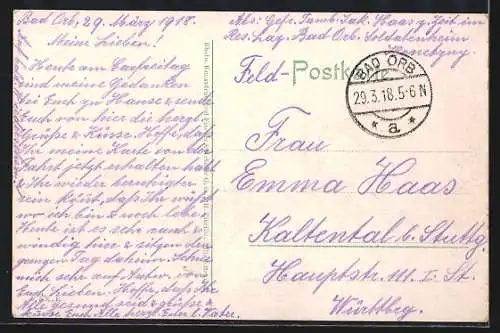 Bad Orb, 29. März 1918.
Meine Lieben!
Heute am Carfreitag
sind meine Gedanken
bei Euch zu Hause & sende
Euch von hier die herzl.
Grüße & Küsse. Hoffe, daß
Ihr meine Karte von der
Fahrt jetzt erhalten habt
& Ihr wieder beruhigter
sein könnt, daß Ihr wißt
wo ich bin & noch lebe.
Heute ist es sehr rauh &
windig hier & sitzen den
ganzen Tag daheim. Sehne
mich sehr auf Antw. v.
Euch Lieben. Hoffe, daß Ihr
Alle gesund seid & grüße &
küsse Euch Alle herzl. Euer l. Vater.
Abs: Gefr. Tamb. Jak. Haas z. Zeit im
Res. Laz. Bad Orb. Soldatenheim
Feld-Postkarte
BAD ORB
29.3.18.5-6 N
* a *
Frau
Emma Haas
Kaltental b. Stuttg.
Hauptstr. 111. I. St.
Württbrg.